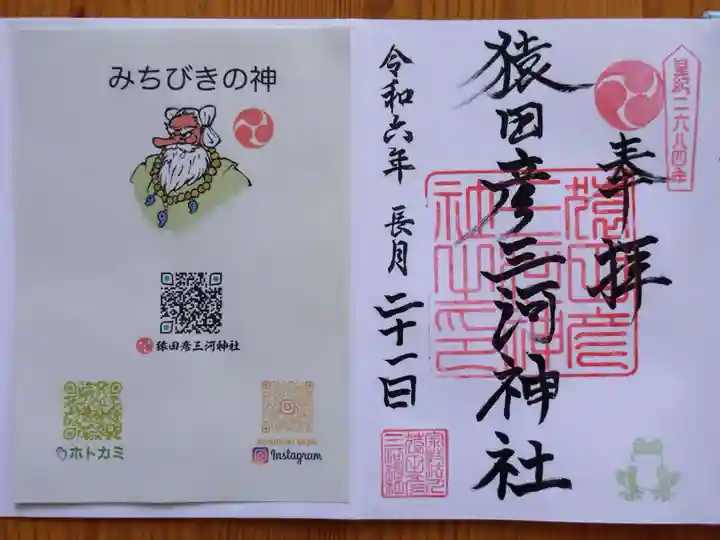 みちびきの神
猿田彦三河神社
ホトカミ
Instagram
皇紀二六八四年
奉拝
猿田彦三河神社
令和六年 長月 二十一日